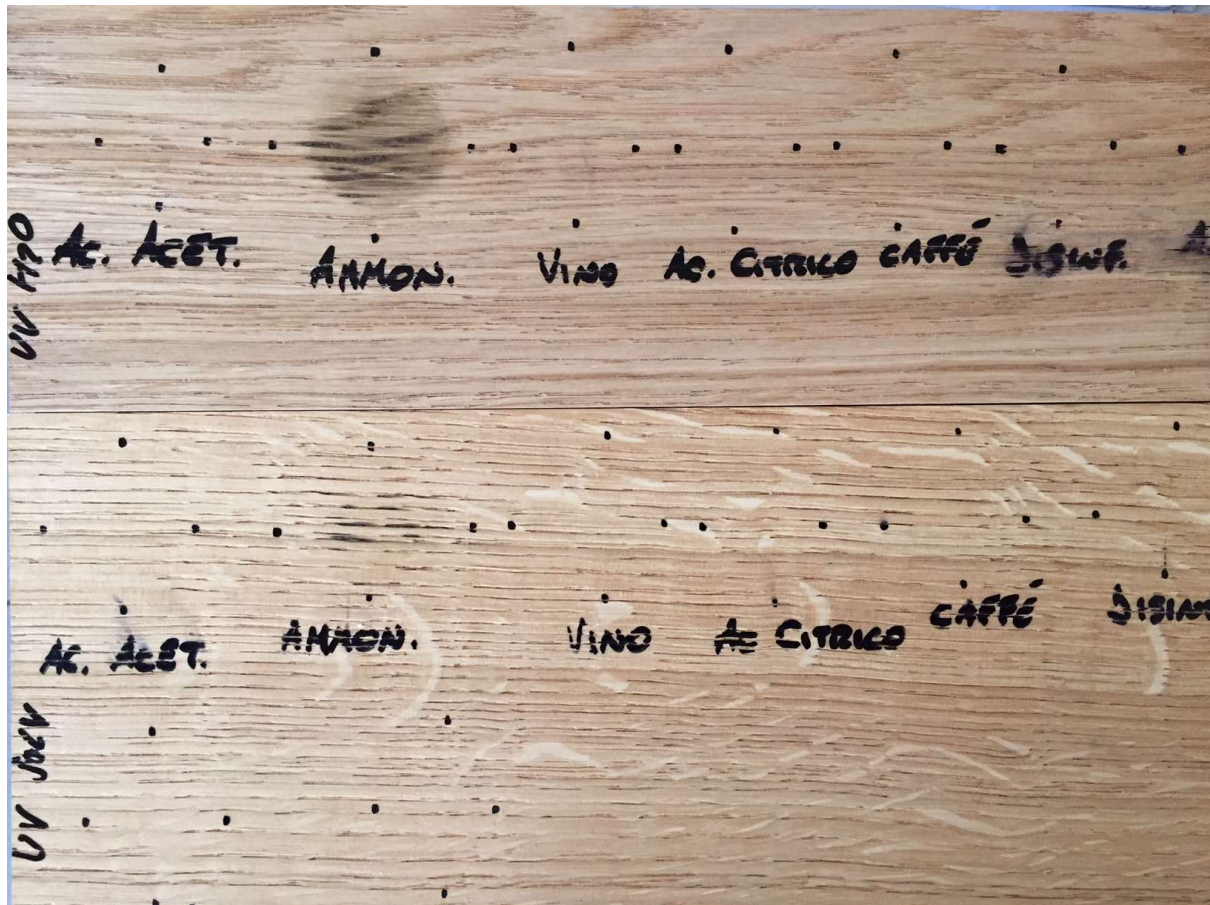 UV H2O
AC. ACET. AMMON. VINO AC. CITRICO CAFFÉ DISINF.
UV SOLV
AC. ACET. AMMON. VINO AC CITRICO CAFFÉ DISIN